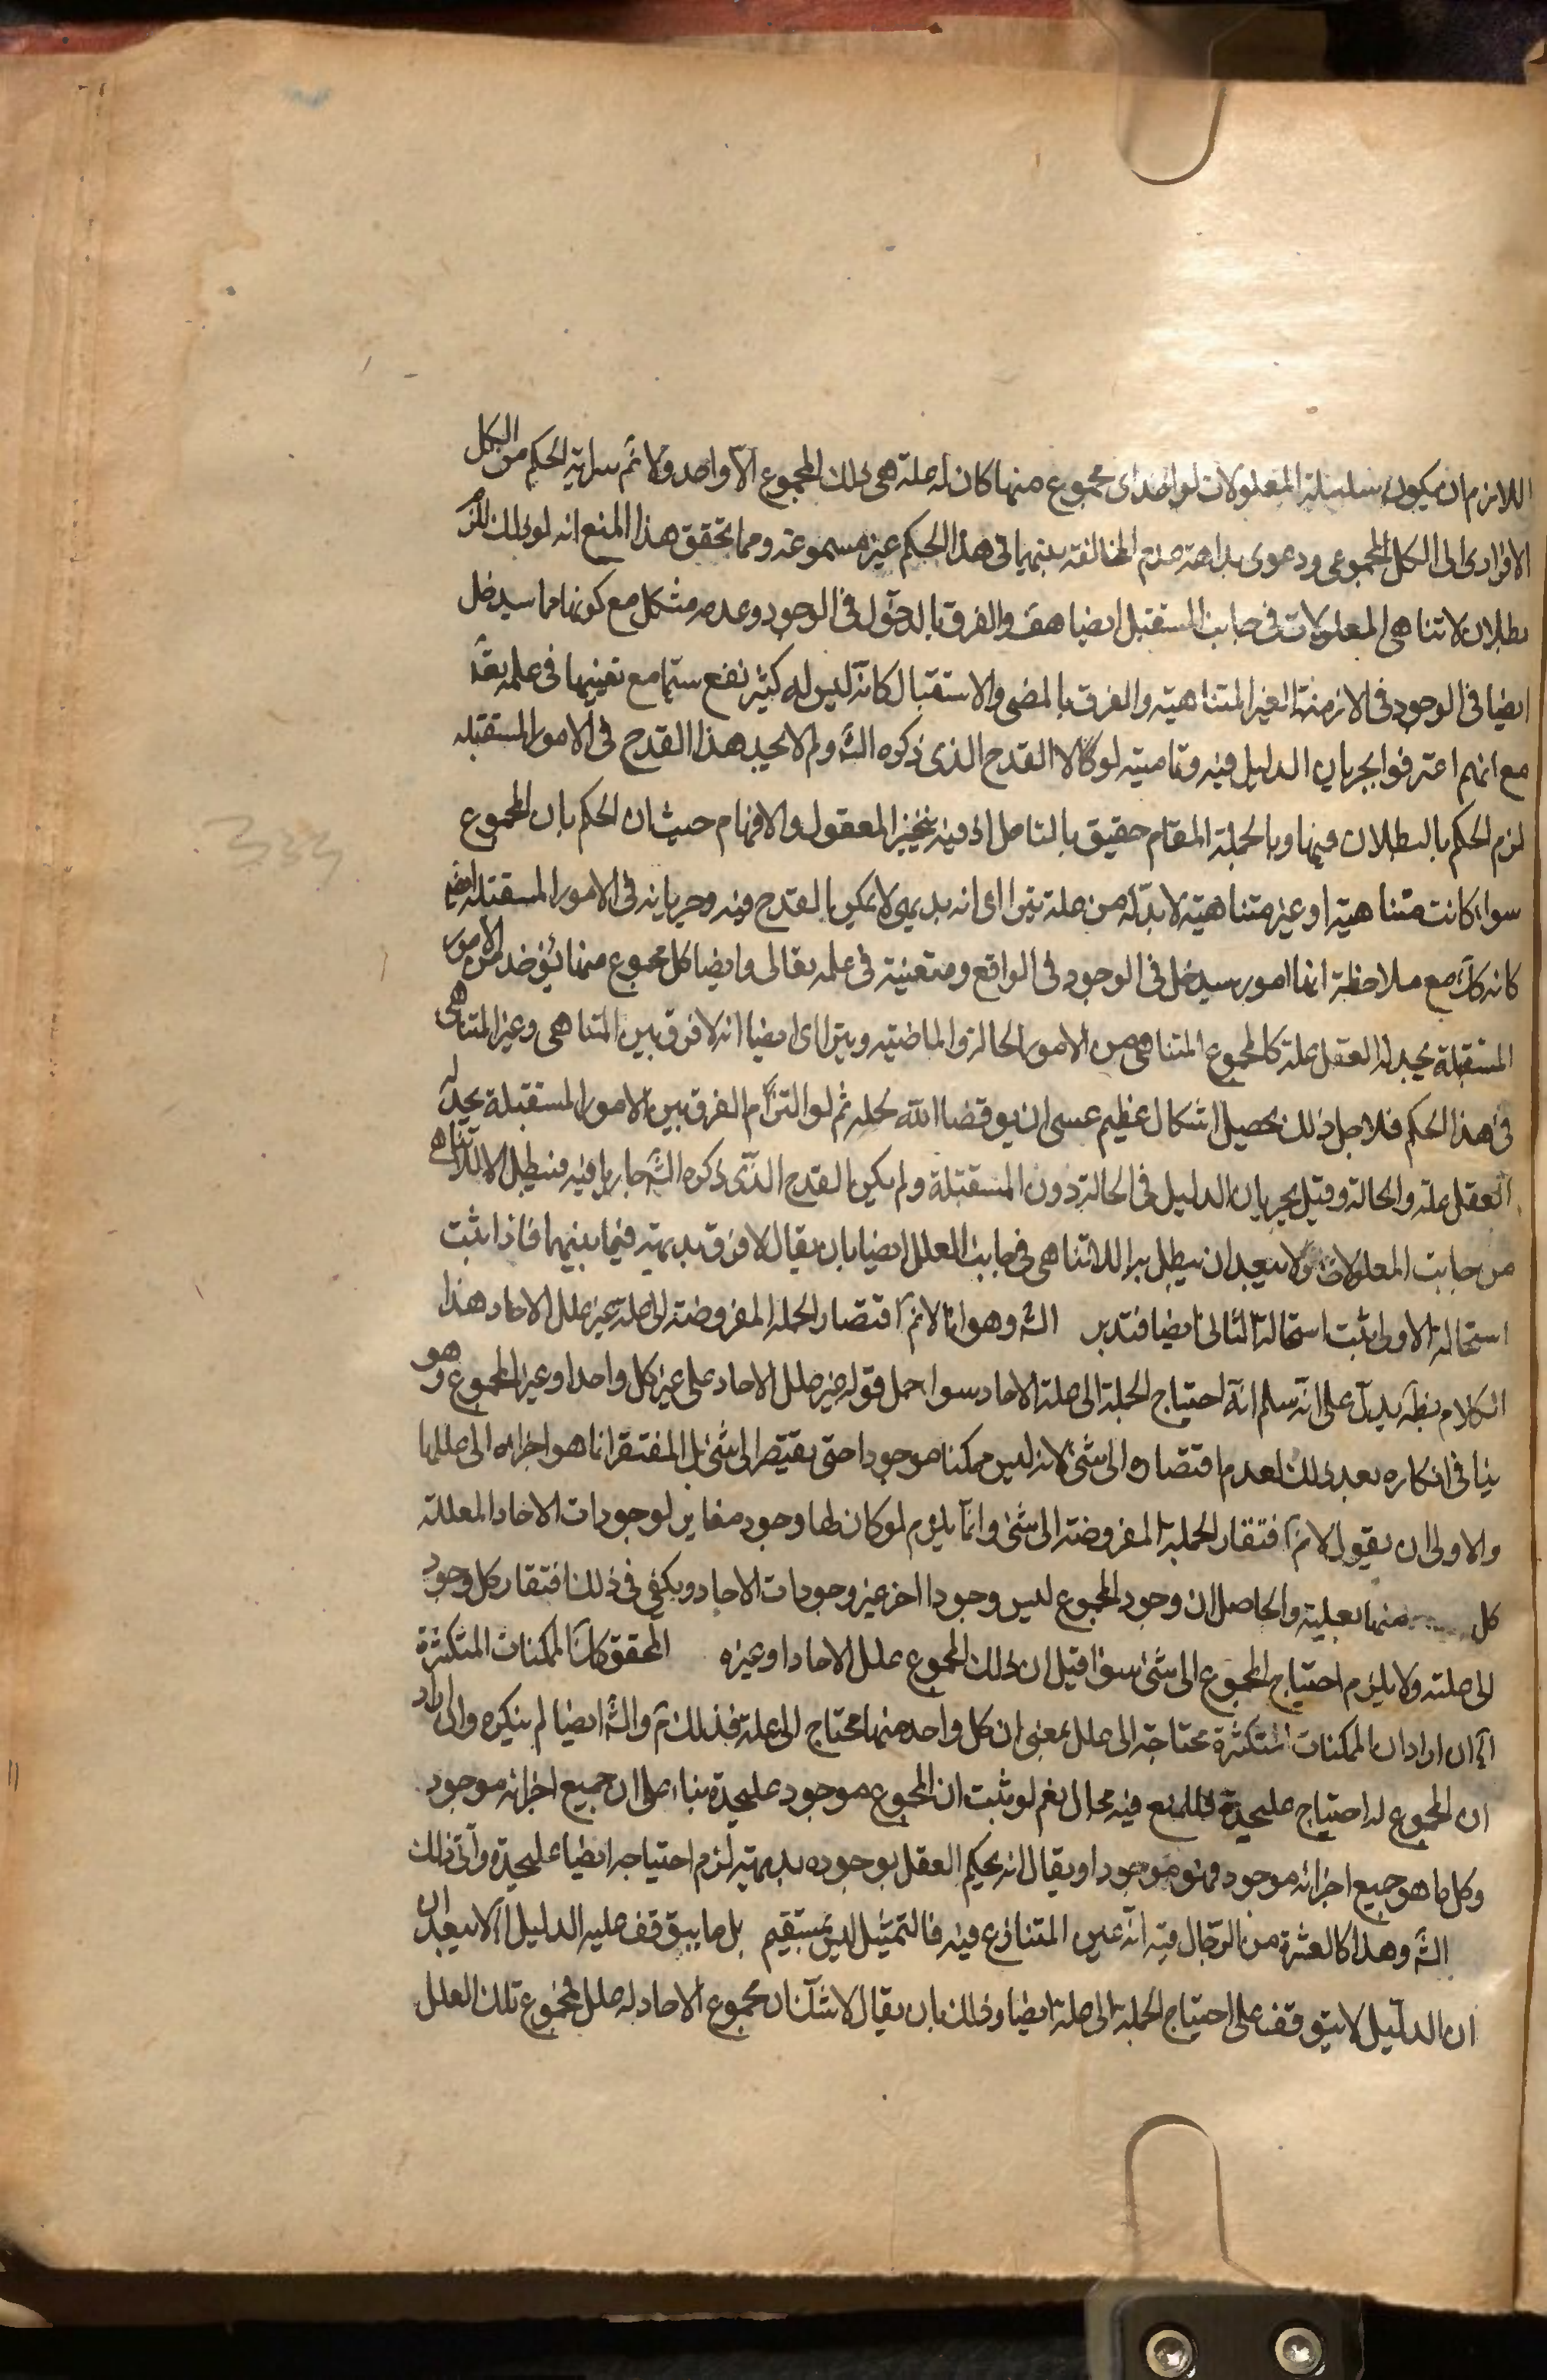 اللازم ان يكون سلسلة المعلولات لو اخذ اى مجموع منها كان له علة هى ذلك المجموع الا واحد ولا نم سراية الحكم من الكل
الافرادى الى الكل المجموعى ودعوى بداهة عدم المخالفة بينهما فى هذا الحكم غير مسموعة ومما تحقق هذا المنع انه لو
بطلان لا تناهى المعلولات فى جانب المستقبل ايضا هف والفرق بالدخول فى الوجود وعدمه مشكل مع كونها مما سيدخل
ايضا فى الوجود فى الازمنة الغير المتناهية والفرق بالمضى والاستقبال كانه ليس له كثير نفع سيما مع تعينها فى علمه تعا
مع انهم اعترفوا بجريان الدليل فيه وتماميته لولا القدح الذى ذكره الش ولم الا يجد هذا القدح فى الامور المستقبله
لزم الحكم بالبطلان فيها وبالجملة المقام حقيق بالتامل اذ فيه تتحير العقول والافهام حيث ان الحكم بان المجموع
سواء كانت متناهية او غير متناهية لا بد له من علة يترا اى انه بديهى لا يمكن القدح فيه وجريانه فى الامور المستقبلة ايضا
كانه كك مع ملاحظة انها امور سيدخل فى الوجود فى الواقع ومتعينة فى علمه تعالى وايضا كل مجموع متناه يؤخذ من الامور
المستقبلة يجد له العقل علة كالمجموع المتناهى من الامور الحالة والماضية ويترا اى ايضا انه لا فرق بين المتناهى وغير المتناهى
فى هذا الحكم فلاجل ذلك يحصل اشكال عظيم عسى ان يوفقنا الله لحله ثم لو التزام الفرق بين الامور المستقبلة يجد له
العقل علة والحالة وقيل بجريان الدليل فى الحالة دون المستقبلة ولم يكن القدح الذى ذكره الش جاريا فيه فيبطل اللاتناهى
من جانب المعلولات ولا يبعد ان يبطل به اللاتناهى فى جانب العلل ايضا بان يقال لا فرق بديهة فيما بينهما فاذا ثبت
استحالة الاولى ثبت استحالة الثانى ايضا فتدبر الش وهو انا لا نم افتقار الجملة المفروضة الى علة غير علل الاحاد هذا
الكلام بظ يدل على انه سلم انه احتياج الجملة الى علة الاحاد سواء حمل قوله غير علل الاحاد على غير كل واحد او غير المجموع وهو
ينافى انكاره بعد ذلك لعدم افتقاره الى شئ لانه ليس ممكنا موجودا حتى يفتقر الى شئ بل المفتقر انما هو اجزاءه الى عللها
والاولى ان يقول لا نم افتقار الجملة المفروضة الى شئ وانما يلزم لو كان لها وجود مغاير لوجودات الاحاد المعللة
كل منها بعلته والحاصل ان وجود المجموع ليس وجودا اخر غير وجودات الاحاد ويكفى فى ذلك افتقار كل وجود
الى علته ولا يلزم احتياج المجموع الى شئ سواء قيل ان ذلك المجموع علل الاحاد او غيره المحقق كان الممكنات المتكثرة
آه ان اراد ان الممكنات المتكثرة محتاجة الى علل بمعنى ان كل واحد منها محتاج الى علة فذلك م والش ايضا لم ينكره وان اراد
ان المجموع له احتياج عليحدة فللمنع فيه مجال نعم لو ثبت ان المجموع موجود عليحدة بناء على ان جميع اجزائه موجود
وكل ما هو جميع اجزائه موجود فهو موجود او يقال انه يحكم العقل بوجوده بديهة لزم احتياجه ايضا عليحدة وآنى ذلك
الش وهذا كالعشرة من الرجال فيه انه عين المتنازع فيه فالتمثيل ليس بمستقيم بل ما يتوقف عليه الدليل آه لا يبعد ان
ان الدليل لا يتوقف على احتياج الجملة الى علة ايضا وذلك بان يقال لا شك ان مجموع الاحاد له علل مجموع تلك العلل